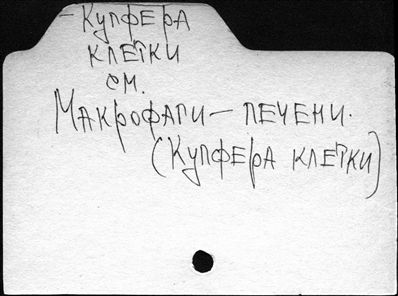 – Купфера
клетки
см.
Макрофаги – печени.
(Купфера клетки)